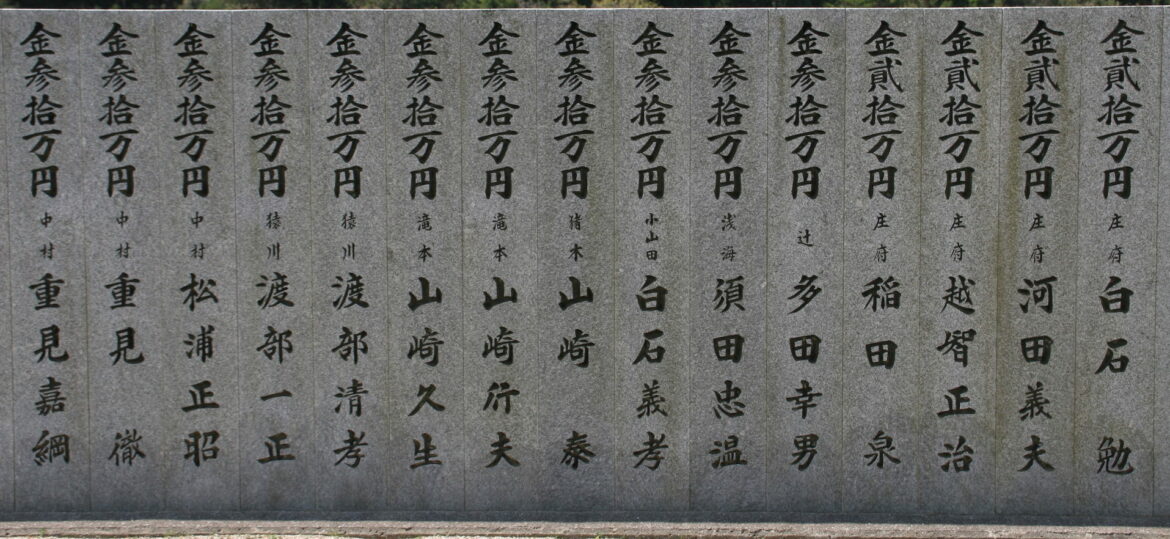 金貳拾万円 庄府 白石 勉
金貳拾万円 庄府 河田義夫
金貳拾万円 庄府 越智正治
金貳拾万円 庄府 稲田 泉
金参拾万円 辻 多田幸男
金参拾万円 浅海 須田忠温
金参拾万円 小山田 白石義孝
金参拾万円 猪木 山崎 泰
金参拾万円 滝本 山崎行夫
金参拾万円 滝本 山崎久生
金参拾万円 猿川 渡部清孝
金参拾万円 猿川 渡部一正
金参拾万円 中村 松浦正昭
金参拾万円 中村 重見 徹
金参拾万円 中村 重見嘉綱